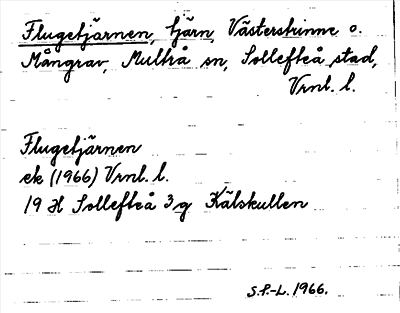 Flugetjärnen, tjärn, Västerstrinne o.
Mångrav, Multrå sn, Sollefteå stad,
Vrnl. l.
Flugetjärnen
ek (1966) Vrnl. l.
19 H Sollefteå 3 g Kälskullen
S.P.-L. 1966.